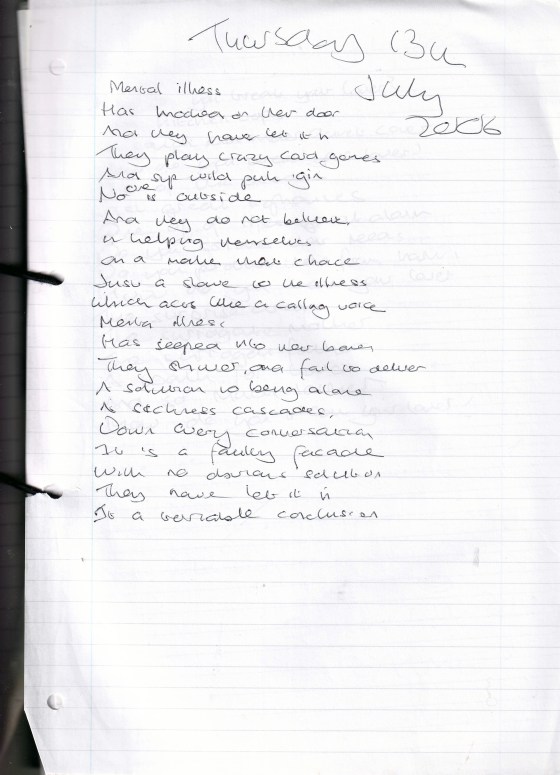 Thursday 13th
July
2006
Mental illness
Has knocked on their door
And they have let it in
They play crazy card games
And sip wild pink gin
No one is outside
And they do not believe
in helping themselves
on a make their choice
Just a slave to the illness
which acts like a calling voice
Mental illness
Has seeped into their bones
They shiver, and fail to deliver
A solution to being alone
As sickness cascades,
Down every conversation
It is a faulty facade
With no obvious solution
They have let it in
Is a veritable conclusion